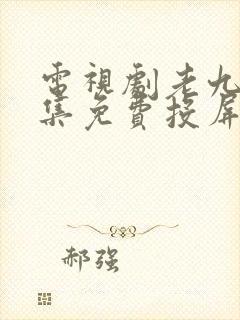 電視劇老九
集免費投屏
郝强